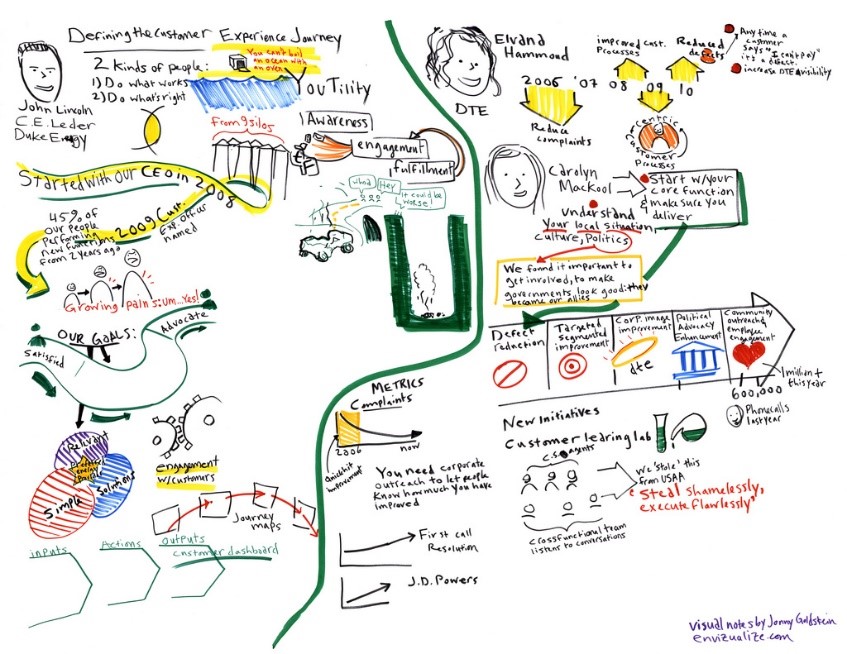 Defining the Customer Experience Journey
John Lincoln
C.E. Leder
Duke Energy
2 kinds of people:
1) Do what works
2) Do what's right
You can't boil
an ocean with
an oven
YouTility
From 9 silos
Awareness
engagement
fulfillment
Started with our CEO in 2008
45% of
our people
Performing
new functions
from 2 years ago
2009 Cust.
Exp. officer
named
Growing pains:um...yes!
what
???
Hey
it could be
worse!
OUR GOALS:
Satisfied
Advocate
Relevant
Simple
Solutions
engagement
w/customers
Journey
maps
inputs
Actions
outputs
customer dashboard
METRICS
Complaints
2006
now
You need corporate
outreach to let people
know how much you have
improved
First call
Resolution
J.D. Powers
Elvana
Hammond
DTE
2006 '07 08 09 10
Reduce
complaints
improved cust.
Processes
Reduced
defects
Any time a
customer
says "I can't pay"
it's a defect.
increase DTE visibility
centric
Customer
Processes
Carolyn
Mackool
Start w/your
core function
& make sure you
deliver
understand
your local situation,
culture, Politics
We found it important to
get involved, to make
governments look good: they
became our allies
Defect
reduction
Targeted
segmented
improvement
Corp. image
improvement
dte
Political
Advocacy
Enhancement
Community
outreach &
employee
engagement
1 million +
this year
600,000
Phonecalls
last year
New Initiatives
Customer learing lab
C.S. agents
crossfunctional team
listens to conversations
We 'stole' this
from USAA
"Steal shamelessly,
execute flawlessly"
visual notes by Jonny Goldstein
envizualize.com